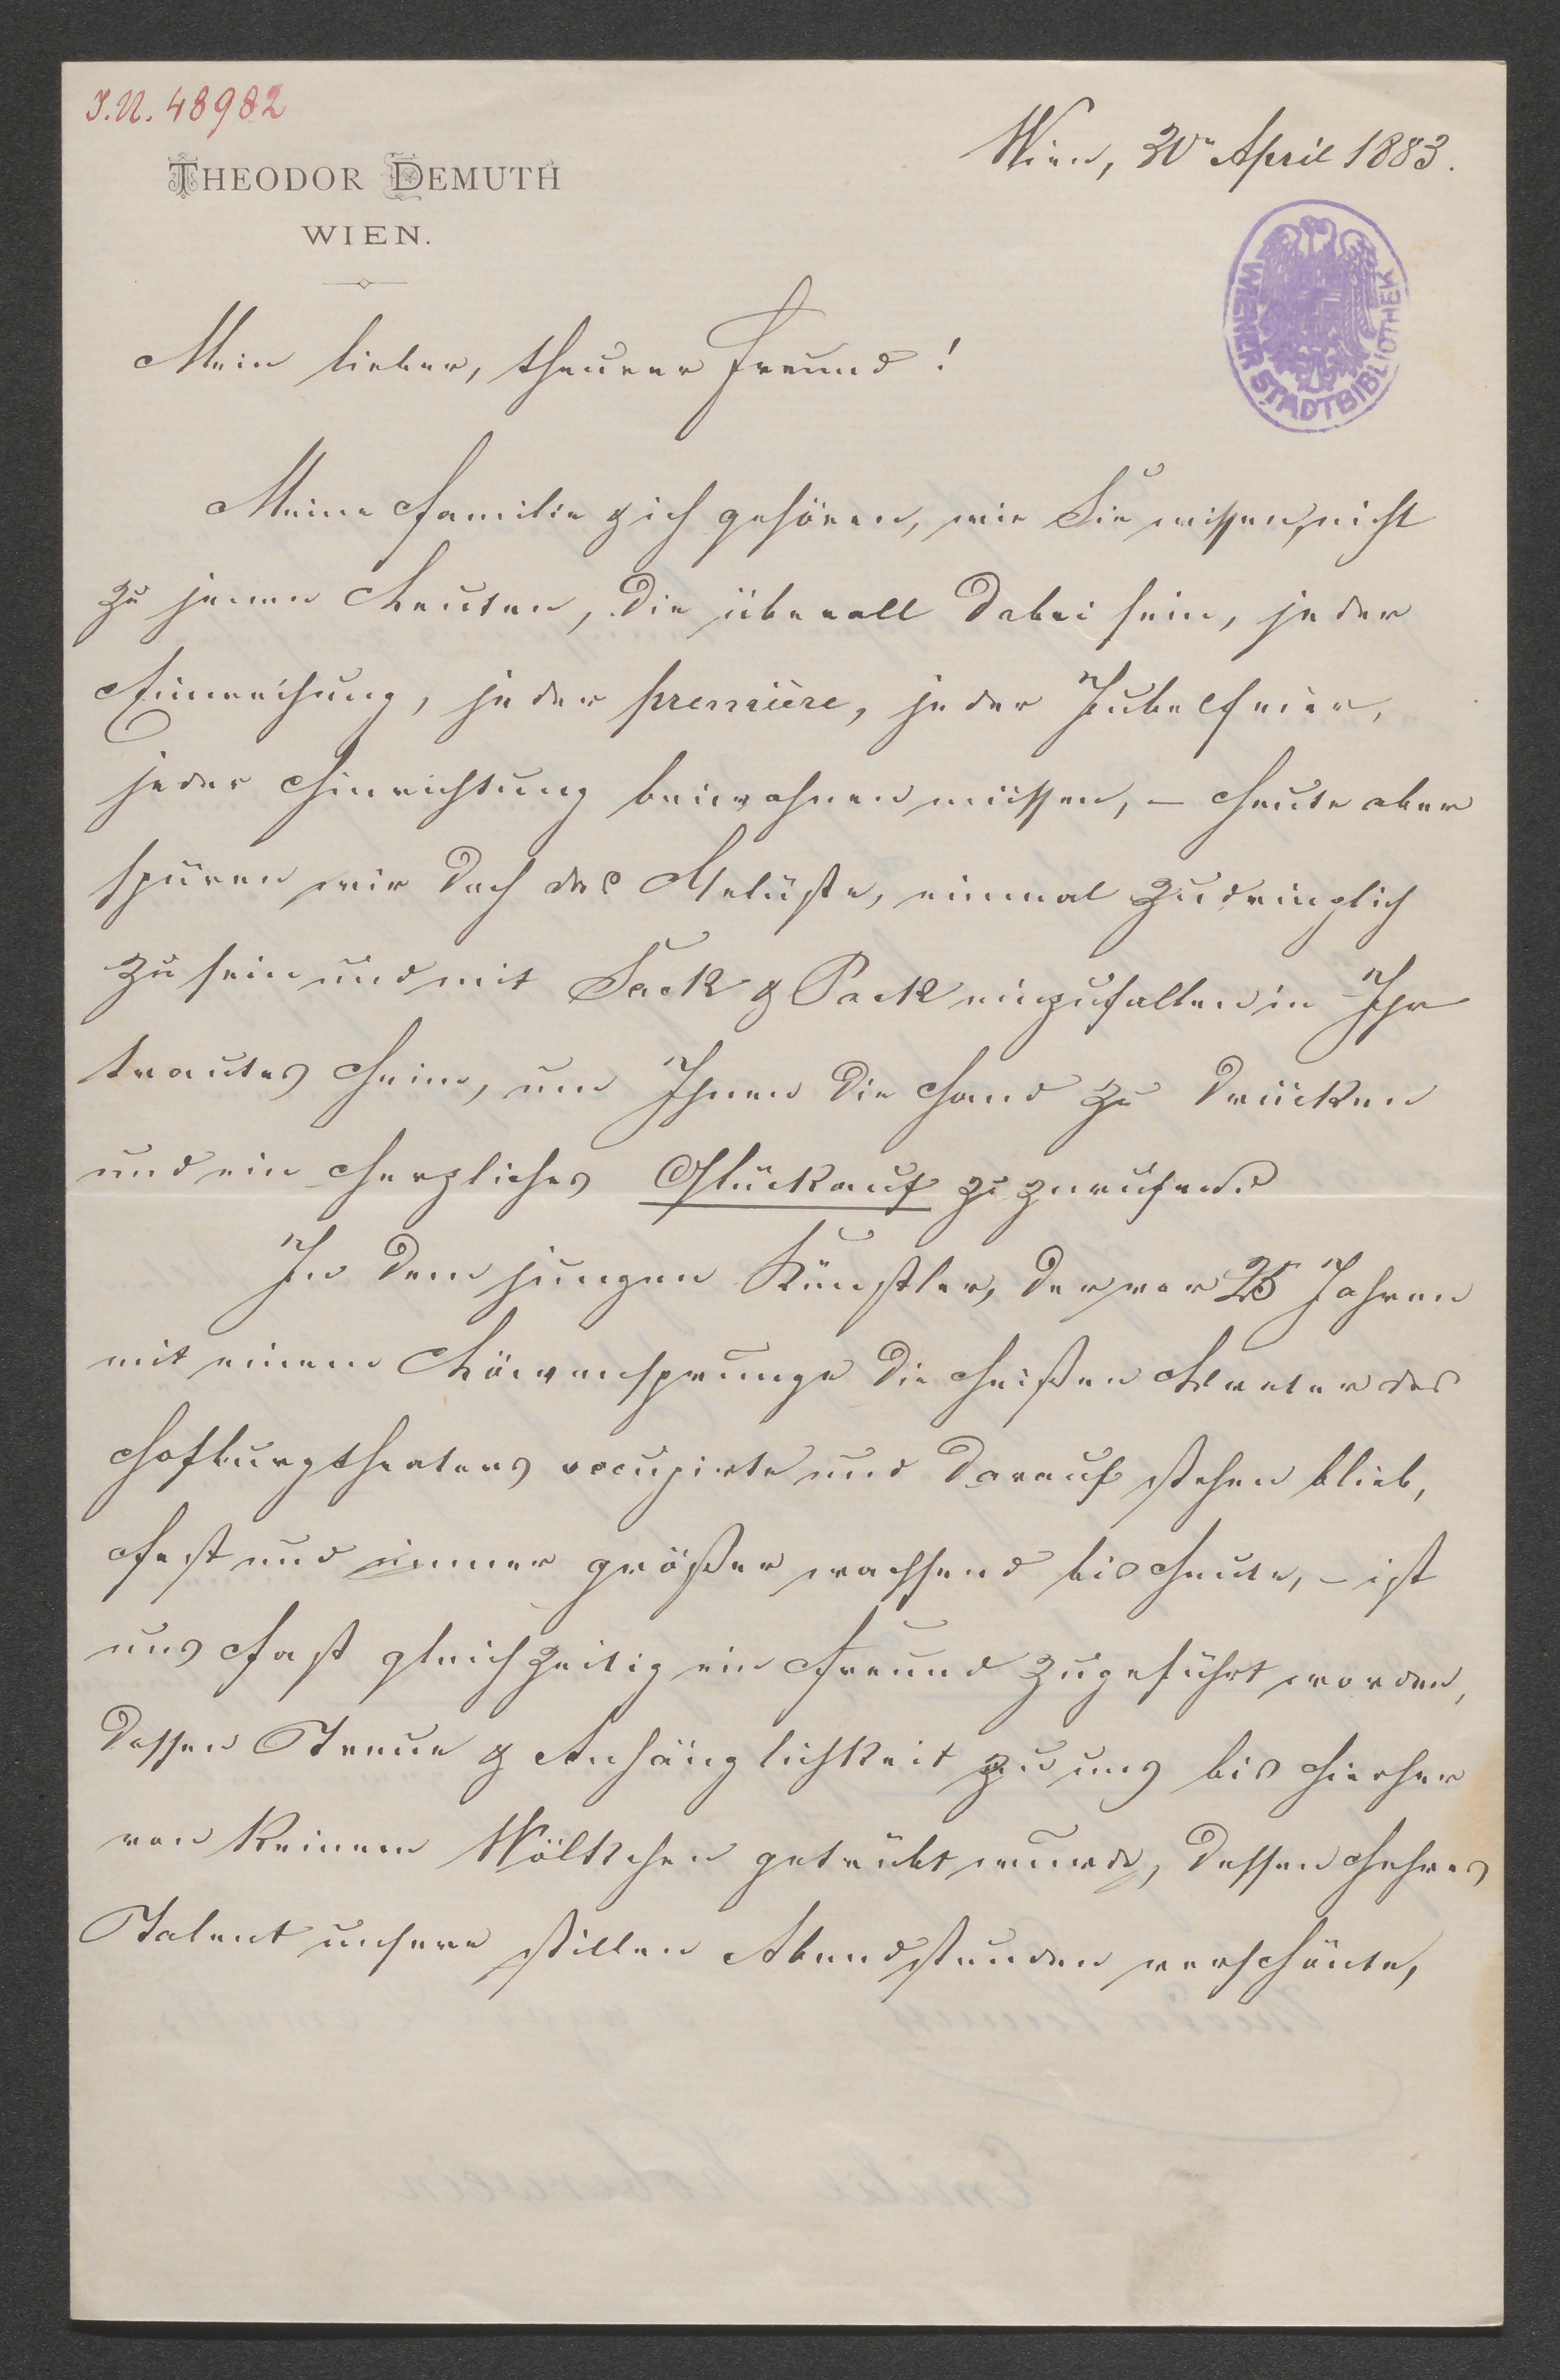 I.N. 48982
THEODOR DEMUTH
WIEN.
Wien, 30n April 1883.
WIENER STADTBIBLIOTHEK
Mein lieber, theurer Freund!
Meine Familie & ich gehören, wie Sie wissen, nicht
zu jenen Leuten, die überall dabei sein, jeder
Einweihung, jeder première, jeder Jubelfeier,
jeder Hinrichtung beiwohnen müssen, – heute aber
spüren wir doch das Gelüste, einmal zudringlich
zu sein und mit Sack & Pack einzufallen in Ihr
trautes Heim, um Ihnen die Hand zu drücken
und ein herzliches Glückauf zuzurufen.
In dem jungen Künstler, der vor 25 Jahren
mit einem Löwensprunge die heißen Bretter des
Hofburgtheaters occupirte und darauf stehen blieb,
fest und immer größer wachsend bis heute, – ist
uns fast gleichzeitig ein Freund zugeführt worden,
dessen Treue & Anhänglichkeit zu uns bis hierher
von keinem Wölkchen getrübt wurde, dessen hehres
Talent unsere stillen Abendstunden verschönte,